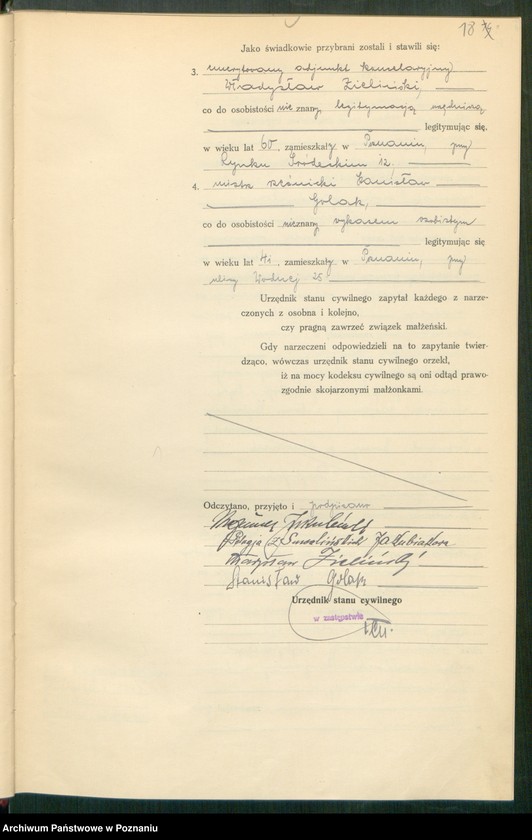 18
Jako świadkowie przybrani zostali i stawili się:
3. emerytowany adjunkt kancelaryjny
Władysław Zieliński,
co do osobistości nie znany, legitymacją urzędniczą
legitymując się,
w wieku lat 60, zamieszkały w Poznaniu, przy
Rynku Śródeckim 12.
4. mistrz rzeźnicki Stanisław
Golak,
co do osobistości nieznany wykazem osobistym
legitymując się
w wieku lat 41, zamieszkały w Poznaniu, przy
ulicy 25
Urzędnik stanu cywilnego zapytał każdego z narze-
czonych z osobna i kolejno,
czy pragną zawrzeć związek małżeński.
Gdy narzeczeni odpowiedzieli na to zapytanie twier-
dząco, wówczas urzędnik stanu cywilnego orzekł,
iż na mocy kodeksu cywilnego są oni odtąd prawo-
zgodnie skojarzonymi małżonkami.
Odczytano, przyjęto i podpisano
Pelagja z Smolińskich Jakubiakowa
Władysław Zieliński
Stanisław Golak
Urzędnik stanu cywilnego
w zastępstwie
Archiwum Państwowe w Poznaniu